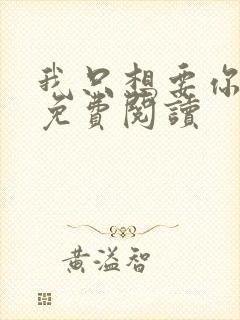 我只想要你
免費閱讀
黃溢智